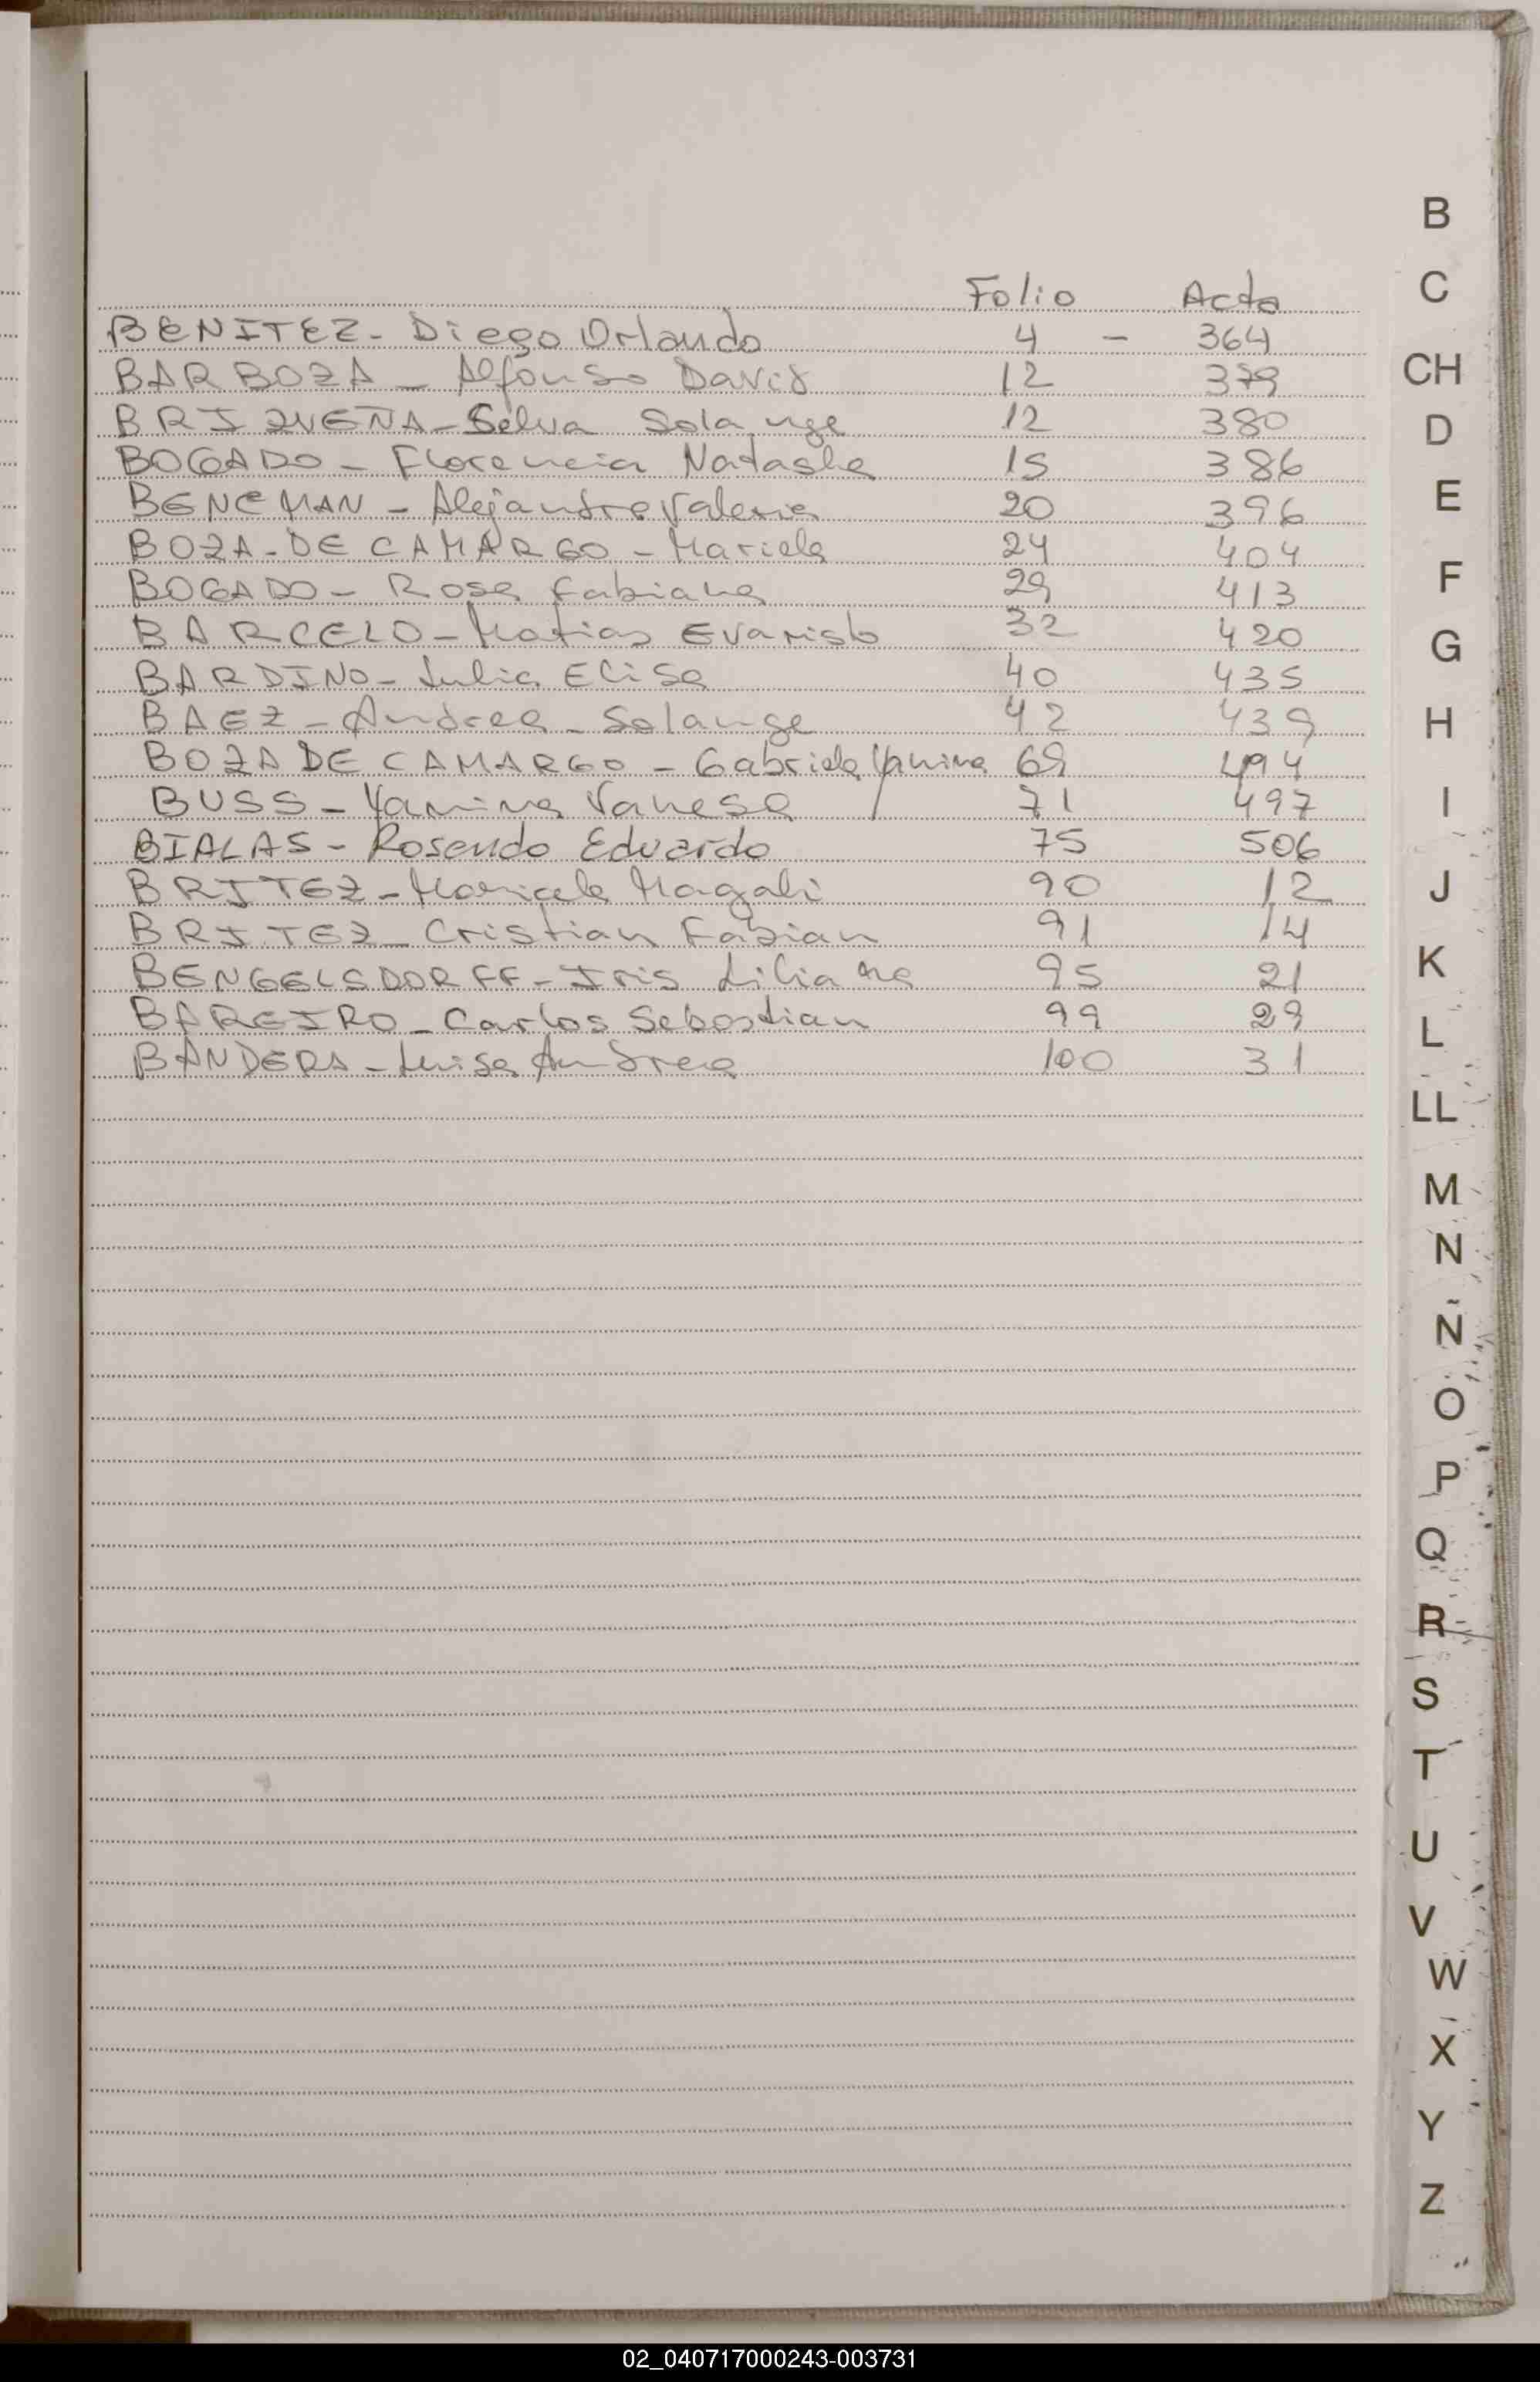 Folio Acta
BENITEZ - Diego Orlando 4 - 364
BARBOZA - Alfonso David 12 379
BRIZUEÑA - Selva Solange 12 380
BOGADO - Florencia Natasha 15 386
BENCMAN - Alejandra Valeria 20 396
BOZA - DE CAMARGO - Mariela 24 404
BOGADO - Rosa Fabiana 29 413
BARCELO - Matias Evaristo 32 420
BARDINO - Julia Elisa 40 435
BAEZ - Andrea - Solange 42 439
BOZA DE CAMARGO - Gabriela Yanina 69 494
BUSS - Yanina Vanesa 71 497
BIALAS - Rosendo Eduardo 75 506
BRITEZ - Maricela Magali 90 12
BRITEZ - Cristian Fabian 91 14
BENGELSDORFF - Iris Liliana 95 21
BAREIRO - Carlos Sebastian 99 29
BANDERA - Luisa Andrea 100 31
B
C
CH
D
E
F
G
H
I
J
K
L
LL
M
N
Ñ
O
P
Q
R
S
T
U
V
W
X
Y
Z
02_040717000243-003731